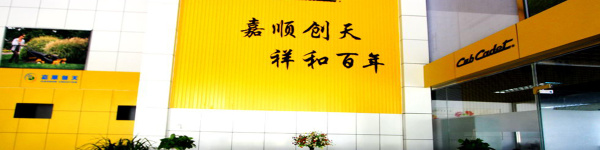 嘉顺创天
祥和百年
Cub Cadet
嘉顺创天